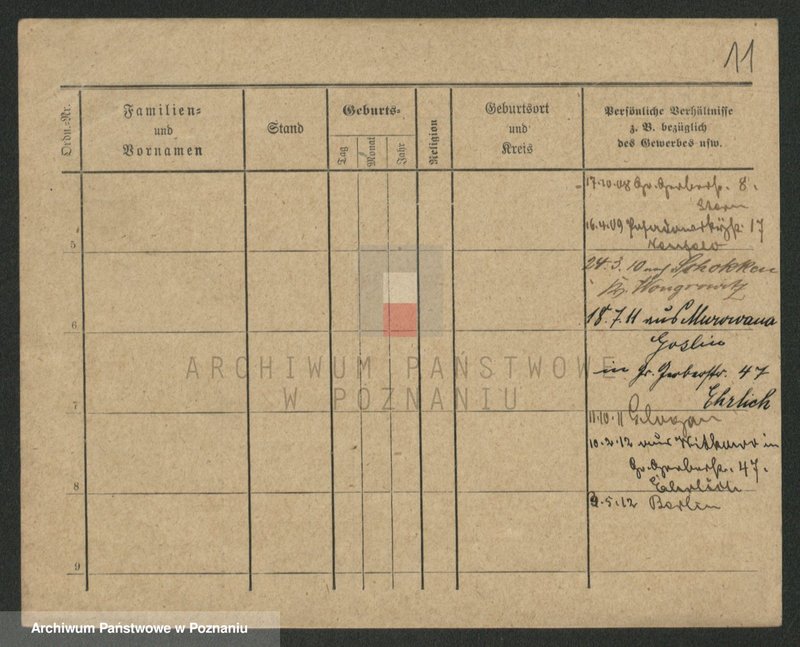 11
Ordn.-Nr.
Familien=
und
Vornamen
Stand
Geburts=
Tag
Monat
Jahr
Religion
Geburtsort
und
Kreis
Persönliche Verhältnisse
z. B. bezüglich
des Gewerbes usw.
17.10.08 Gr. Gerberstr. 8.
16.4.09 17
5
24.3.10 nach Schokken
Kr. Wongrowitz
6
18.7.11 aus Murowana
Goslin
ARCHIWUM PAŃSTWOWE
in Gr. Gerberstr. 47
W POZNANIU
Ehrlich
7
11.10.11 Glogau
10.2.12 aus Witkowo in
Gr. Gerberstr. 47.
8
9.5.12 Berlin
9
Archiwum Państwowe w Poznaniu